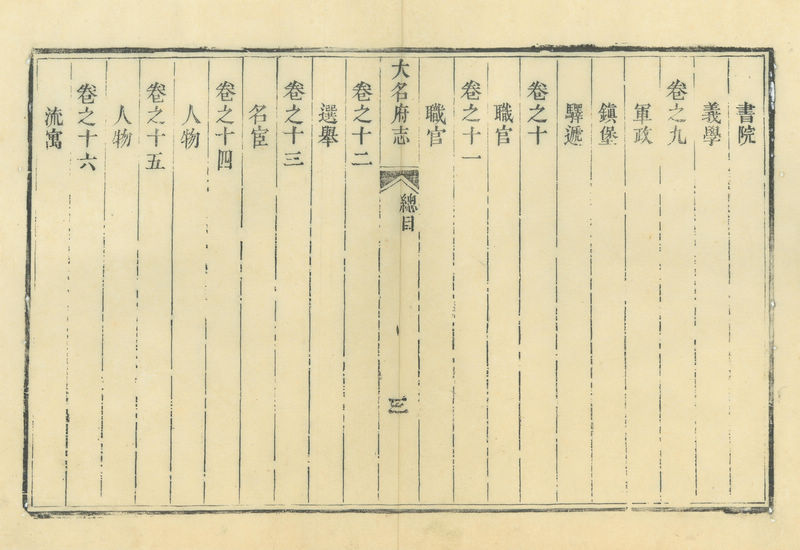 書院
義學
卷之九
軍政
鎮堡
驛遞
卷之十
職官
卷之十一
職官
大名府志
總目
三
卷之十二
選舉
卷之十三
名宦
卷之十四
人物
卷之十五
人物
卷之十六
流寓